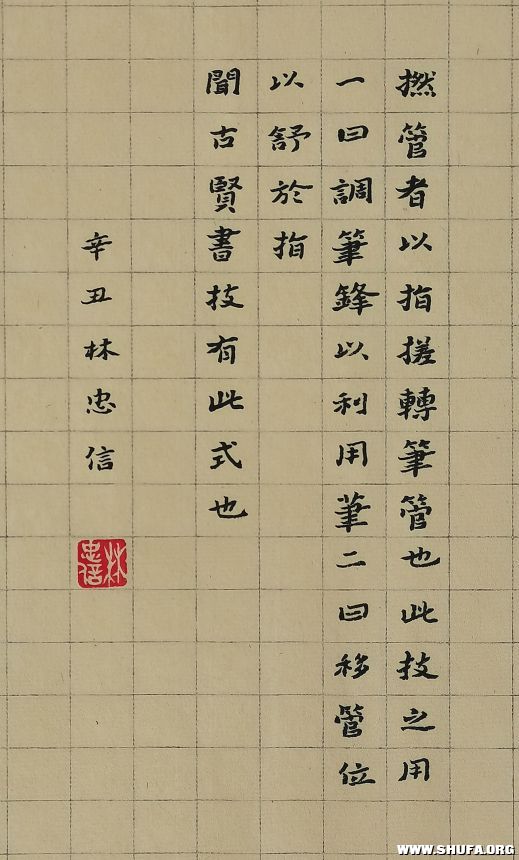 撚管者以指搓轉筆管也此技之用
一曰調筆鋒以利用筆二曰移管位
以舒於指
聞古賢書技有此式也
辛丑林忠信
林忠信
WWW.SHUFA.ORG